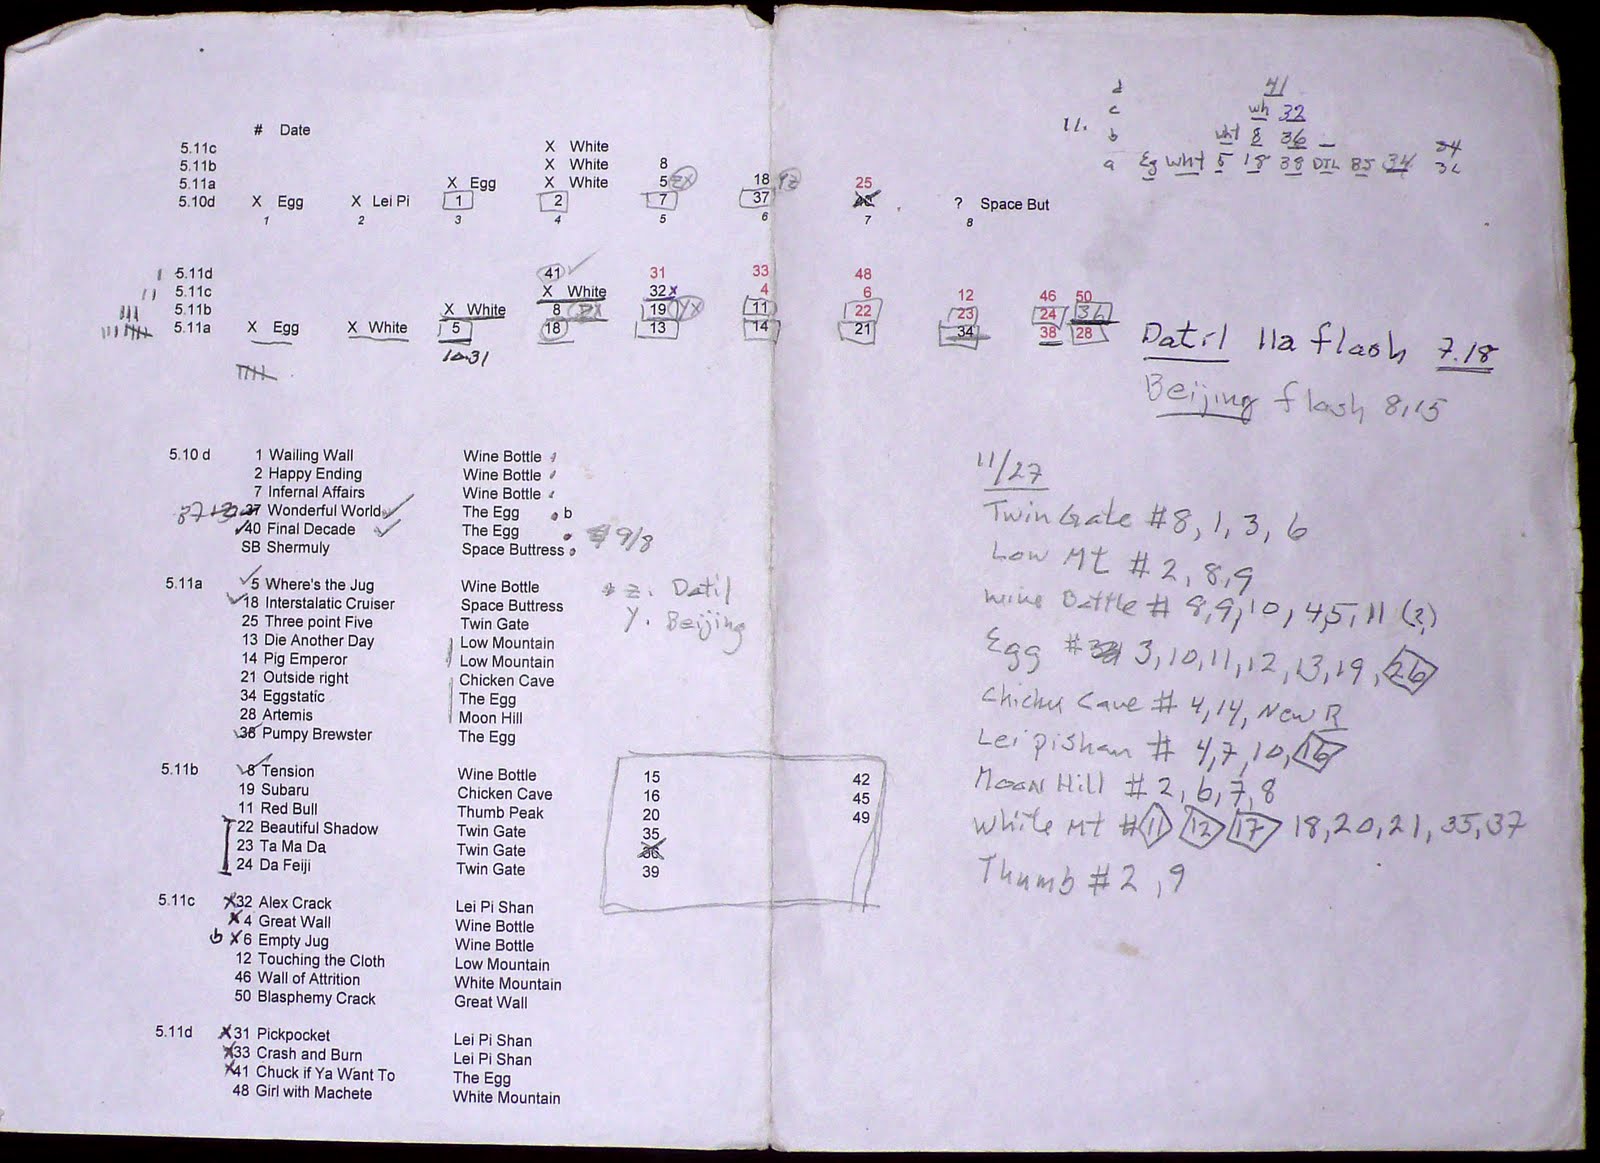 # Date
5.11c X White
5.11b X White 8
5.11a X Egg X White 5 zx 18 yz 25
5.10d X Egg X Lei Pi 1 2 7 37 ? Space But
1 2 3 4 5 6 7 8
d 41
c wh 32
11. b wht 8 36 –
a Eg Wht 5 18 38 DTL 85 34
5.11d 41 31 33 48
5.11c X White 32 x 4 6 12 46 50
5.11b X White 8 zx 19 yx 11 22 23 24 36
5.11a X Egg X White 5 18 13 14 21 34 38 28
10.31
Datil 11a flash 7.18
Beijing flash 8,15
5.10 d 1 Wailing Wall Wine Bottle
2 Happy Ending Wine Bottle
7 Infernal Affairs Wine Bottle
37 Wonderful World The Egg b
40 Final Decade The Egg 9/8
SB Shermuly Space Buttress
5.11a 5 Where's the Jug Wine Bottle
18 Interstalatic Cruiser Space Buttress
25 Three point Five Twin Gate
13 Die Another Day Low Mountain
14 Pig Emperor Low Mountain
21 Outside right Chicken Cave
34 Eggstatic The Egg
28 Artemis Moon Hill
38 Pumpy Brewster The Egg
z. Datil
y. Beijing
5.11b 8 Tension Wine Bottle 15 42
19 Subaru Chicken Cave 16 45
11 Red Bull Thumb Peak 20 49
22 Beautiful Shadow Twin Gate 35
23 Ta Ma Da Twin Gate 36
24 Da Feiji Twin Gate 39
5.11c X 32 Alex Crack Lei Pi Shan
X 4 Great Wall Wine Bottle
b X 6 Empty Jug Wine Bottle
12 Touching the Cloth Low Mountain
46 Wall of Attrition White Mountain
50 Blasphemy Crack Great Wall
5.11d X 31 Pickpocket Lei Pi Shan
X 33 Crash and Burn Lei Pi Shan
X 41 Chuck if Ya Want To The Egg
48 Girl with Machete White Mountain
11/27
Twin Gate # 8, 1, 3, 6
Low Mt # 2, 8, 9
Wine Bottle # 8, 9, 10, 4, 5, 11 (?)
Egg # 3, 10, 11, 12, 13, 19, 26
Chicken Cave # 4, 14, New R
Lei pi shan # 4, 7, 10, 16
Moon Hill # 2, 6, 7, 8
White Mt # 11 12 17 18, 20, 21, 35, 37
Thumb # 2, 9